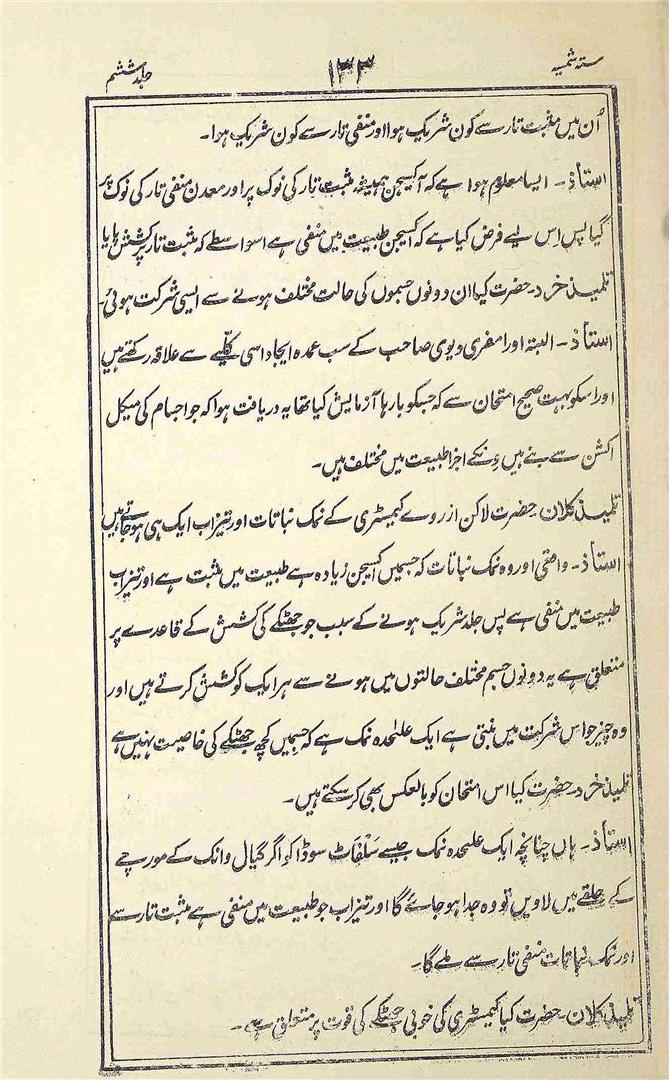 ستہ شمسیہ ۱۳۳ جلد ششم
اُن میں مثبت تار سے کون شریک ہوا اور منفی تار سے کون شریک ہوا۔
استاذ۔ ایسا معلوم ہوا ہے کہ آکسیجن ہمیشہ مثبت تار کی نوک پر اور معدن منفی تار کی نوک پر
گیا پس اس لیے فرض کیا ہے کہ اکسیجن طبیعت میں منفی ہے اسواسطے کہ مثبت تار پر کشش پایا
تلمیذ خرد۔ حضرت کیا ان دونوں جسموں کی حالت مختلف ہونے سے ایسی شرکت ہوئی۔
استاذ۔ البتہ اور امفری ڈیوی صاحب کے سب عمدہ ایجاد اسی کلیے سے علاقہ رکھتے ہیں
اور اسکو بہت صحیح امتحان سے کہ جسکو بارہا آزمایش کیا تھا یہ دریافت ہوا کہ جو اجسام کی میکل
اکشن سے بنے ہیں ونکے اجزا طبیعت میں مختلف ہیں۔
تلمیذ کلان۔ حضرت لاکن از روے کیمسٹری کے نمک نباتات اور تیزاب ایک ہی ہو جاتے ہیں
استاذ۔ واقعی اور وہ نمک نباتات کہ جسمیں اکسیجن زیادہ ہے طبیعت میں مثبت ہے اور تیزاب
طبیعت میں منفی ہے پس جلد شریک ہونے کے سبب جو جھٹکے کی کشش کے قاعدے پر
متعلق ہے یہ دونوں جسم مختلف حالتوں میں ہونے سے ہر ایک کو کشش کرتے ہیں اور
وہ چیز جو اس شرکت میں بنتی ہے ایک علٰحدہ نمک ہے کہ جسمیں کچھ جھٹکے کی خاصیت نہیں ہے
تلمیذ خرد۔ حضرت کیا اس امتحان کو بالعکس بھی کر سکتے ہیں۔
استاذ۔ ہاں چنانچہ ایک علٰحدہ نمک جیسے سَلْفَاٹ سوڈا کو اگر گیال وانک کے مورچے
کے حلقے میں لاویں تو وہ جدا ہو جائے گا اور تیزاب جو طبیعت میں منفی ہے مثبت تار سے
اور نمک نباتات منفی تار سے ملے گا۔
تلمیذ کلان۔ حضرت کیا کیمسٹری کی خوبی جھٹکے کی قوت پر متعلق ہے۔